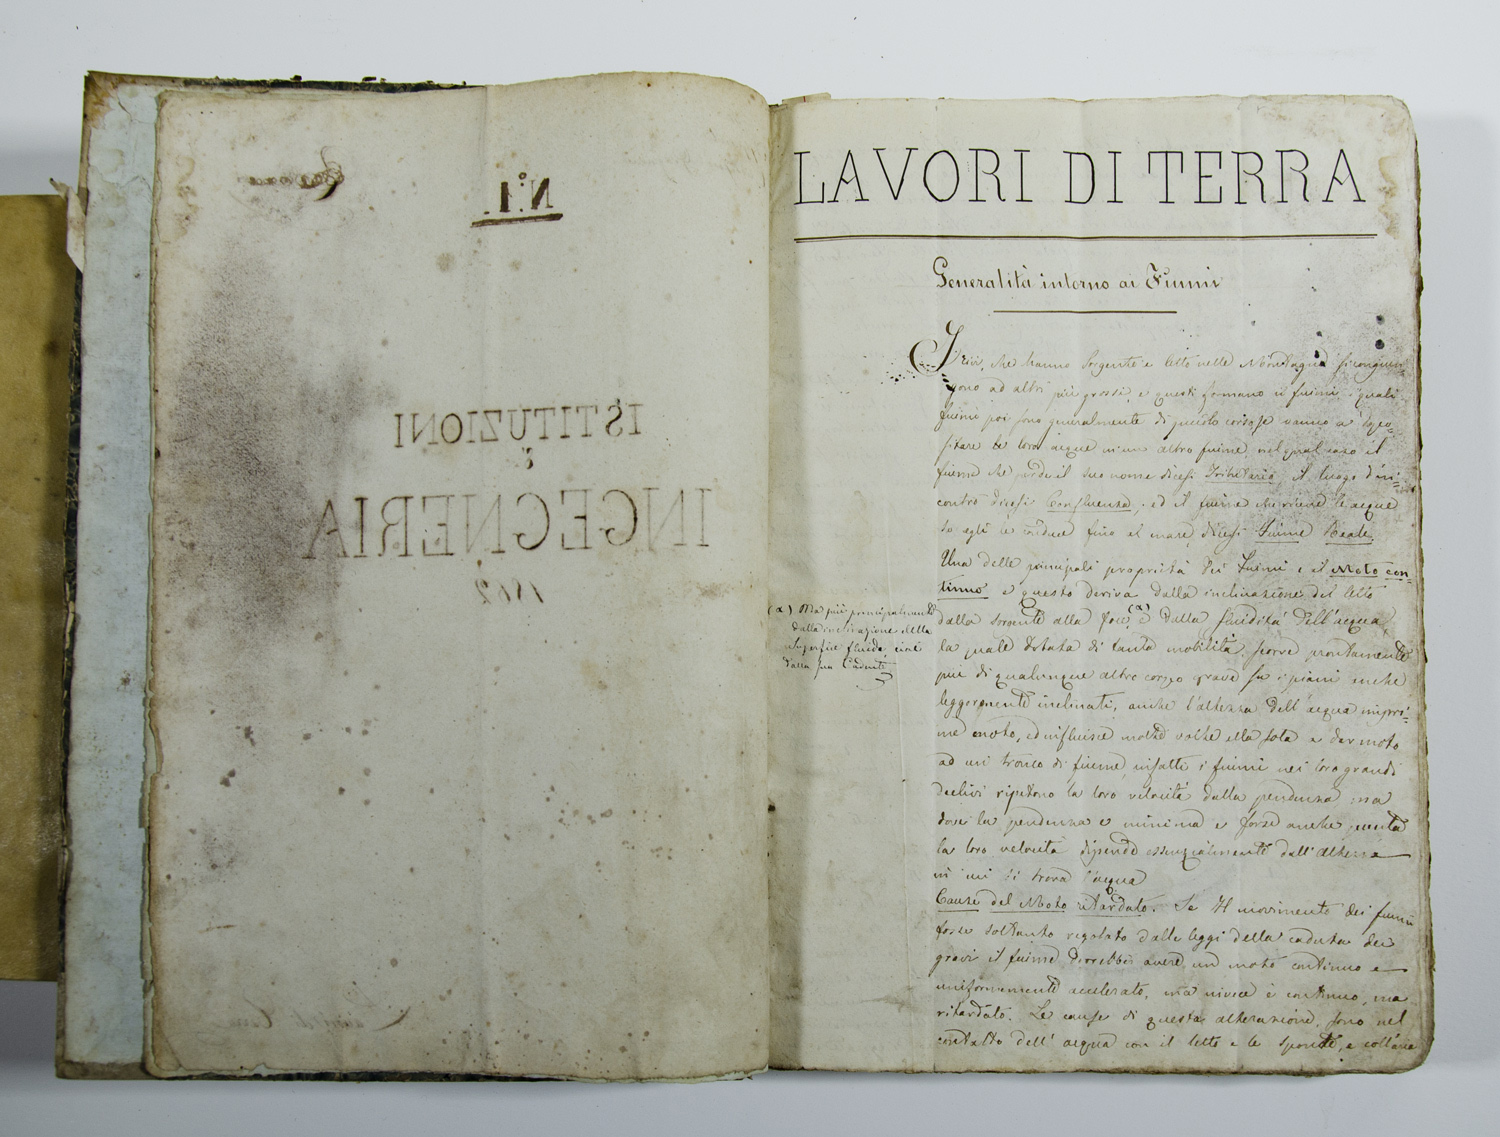 N.º 1.
ISTITUZIONI
INGEGNERIA
1862
LAVORI DI TERRA
Generalità intorno ai Fiumi
I rivi, che hanno sorgente e letto nelle Montagne si congiun-
gono ad altri più grossi, e questi formano il fiume, i quali
fiumi poi sono generalmente di
sitare le loro acque in uno altro fiume, nel qual caso il
fiume che perde il suo nome dicesi Tributario, il luogo d'in-
contro dicesi Confluenza, ed il fiume che riceve le acque
se egli le conduce fino al mare, dicesi Fiume Reale.
Una delle principali proprietà dei fiumi è il Moto con-
tinuo e questo deriva dalla inclinazione del letto
dalla sorgente alla foce, (a) e dalla fluidità dell'acqua,
la quale dotata di tanta mobilità, scorre prontamente
più di qualunque altro corpo grave su i piani anche
leggermente inclinati, anche l'altezza dell'acqua impri-
me moto, ed influisce molte volte ella sola a dar moto
ad un tronco di fiume, infatti i fiumi nei loro grandi
declivi ripetono la loro velocità dalla pendenza ma
dove la pendenza è minima e forse anche
la loro velocità dipende essenzialmente dall'altezza
in cui si trova l'acqua
Cause del Moto ritardato. Se Il movimento dei fiumi
fosse soltanto regolato dalle leggi della caduta dei
gravi il fiume dovrebbe avere un moto continuo e
uniformemente accelerato, ma invece è continuo, ma
ritardato. Le cause di questa alterazione, sono nel
contatto dell'acqua con il letto e le sponde, e coll'aria
(a) Ma più principalmente
dalla inclinazione della
superficie fluida, cioè
dalla sua Cadente